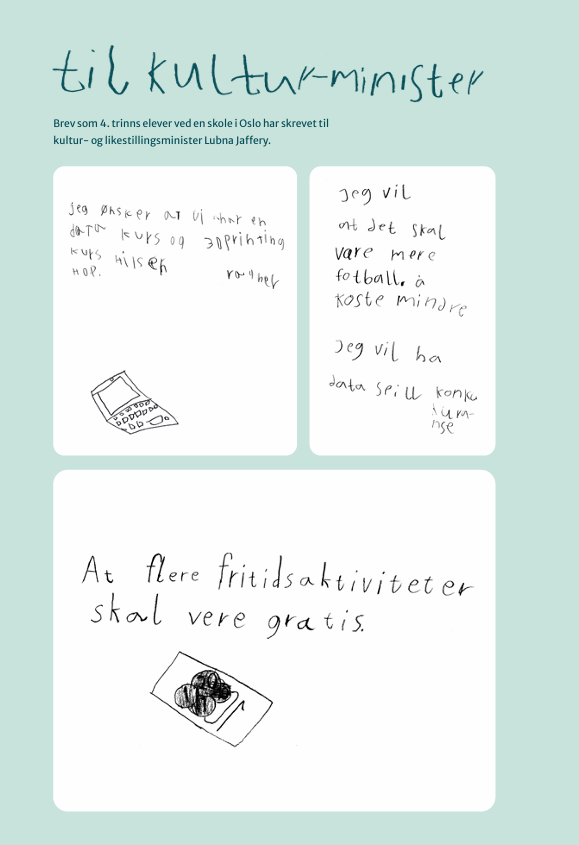 til kultur-minister
Brev som 4. trinns elever ved en skole i Oslo har skrevet til
kultur- og likestillingsminister Lubna Jaffery.
jeg ønsker at vi har en
data kurs og 3Dprinting
kurs hilsen
jeg vil
at det skal
vare mere
fotball. å
koste mindre
jeg vil ha
data spill konku
nse
At flere fritidsaktiviteter
skal vere gratis.